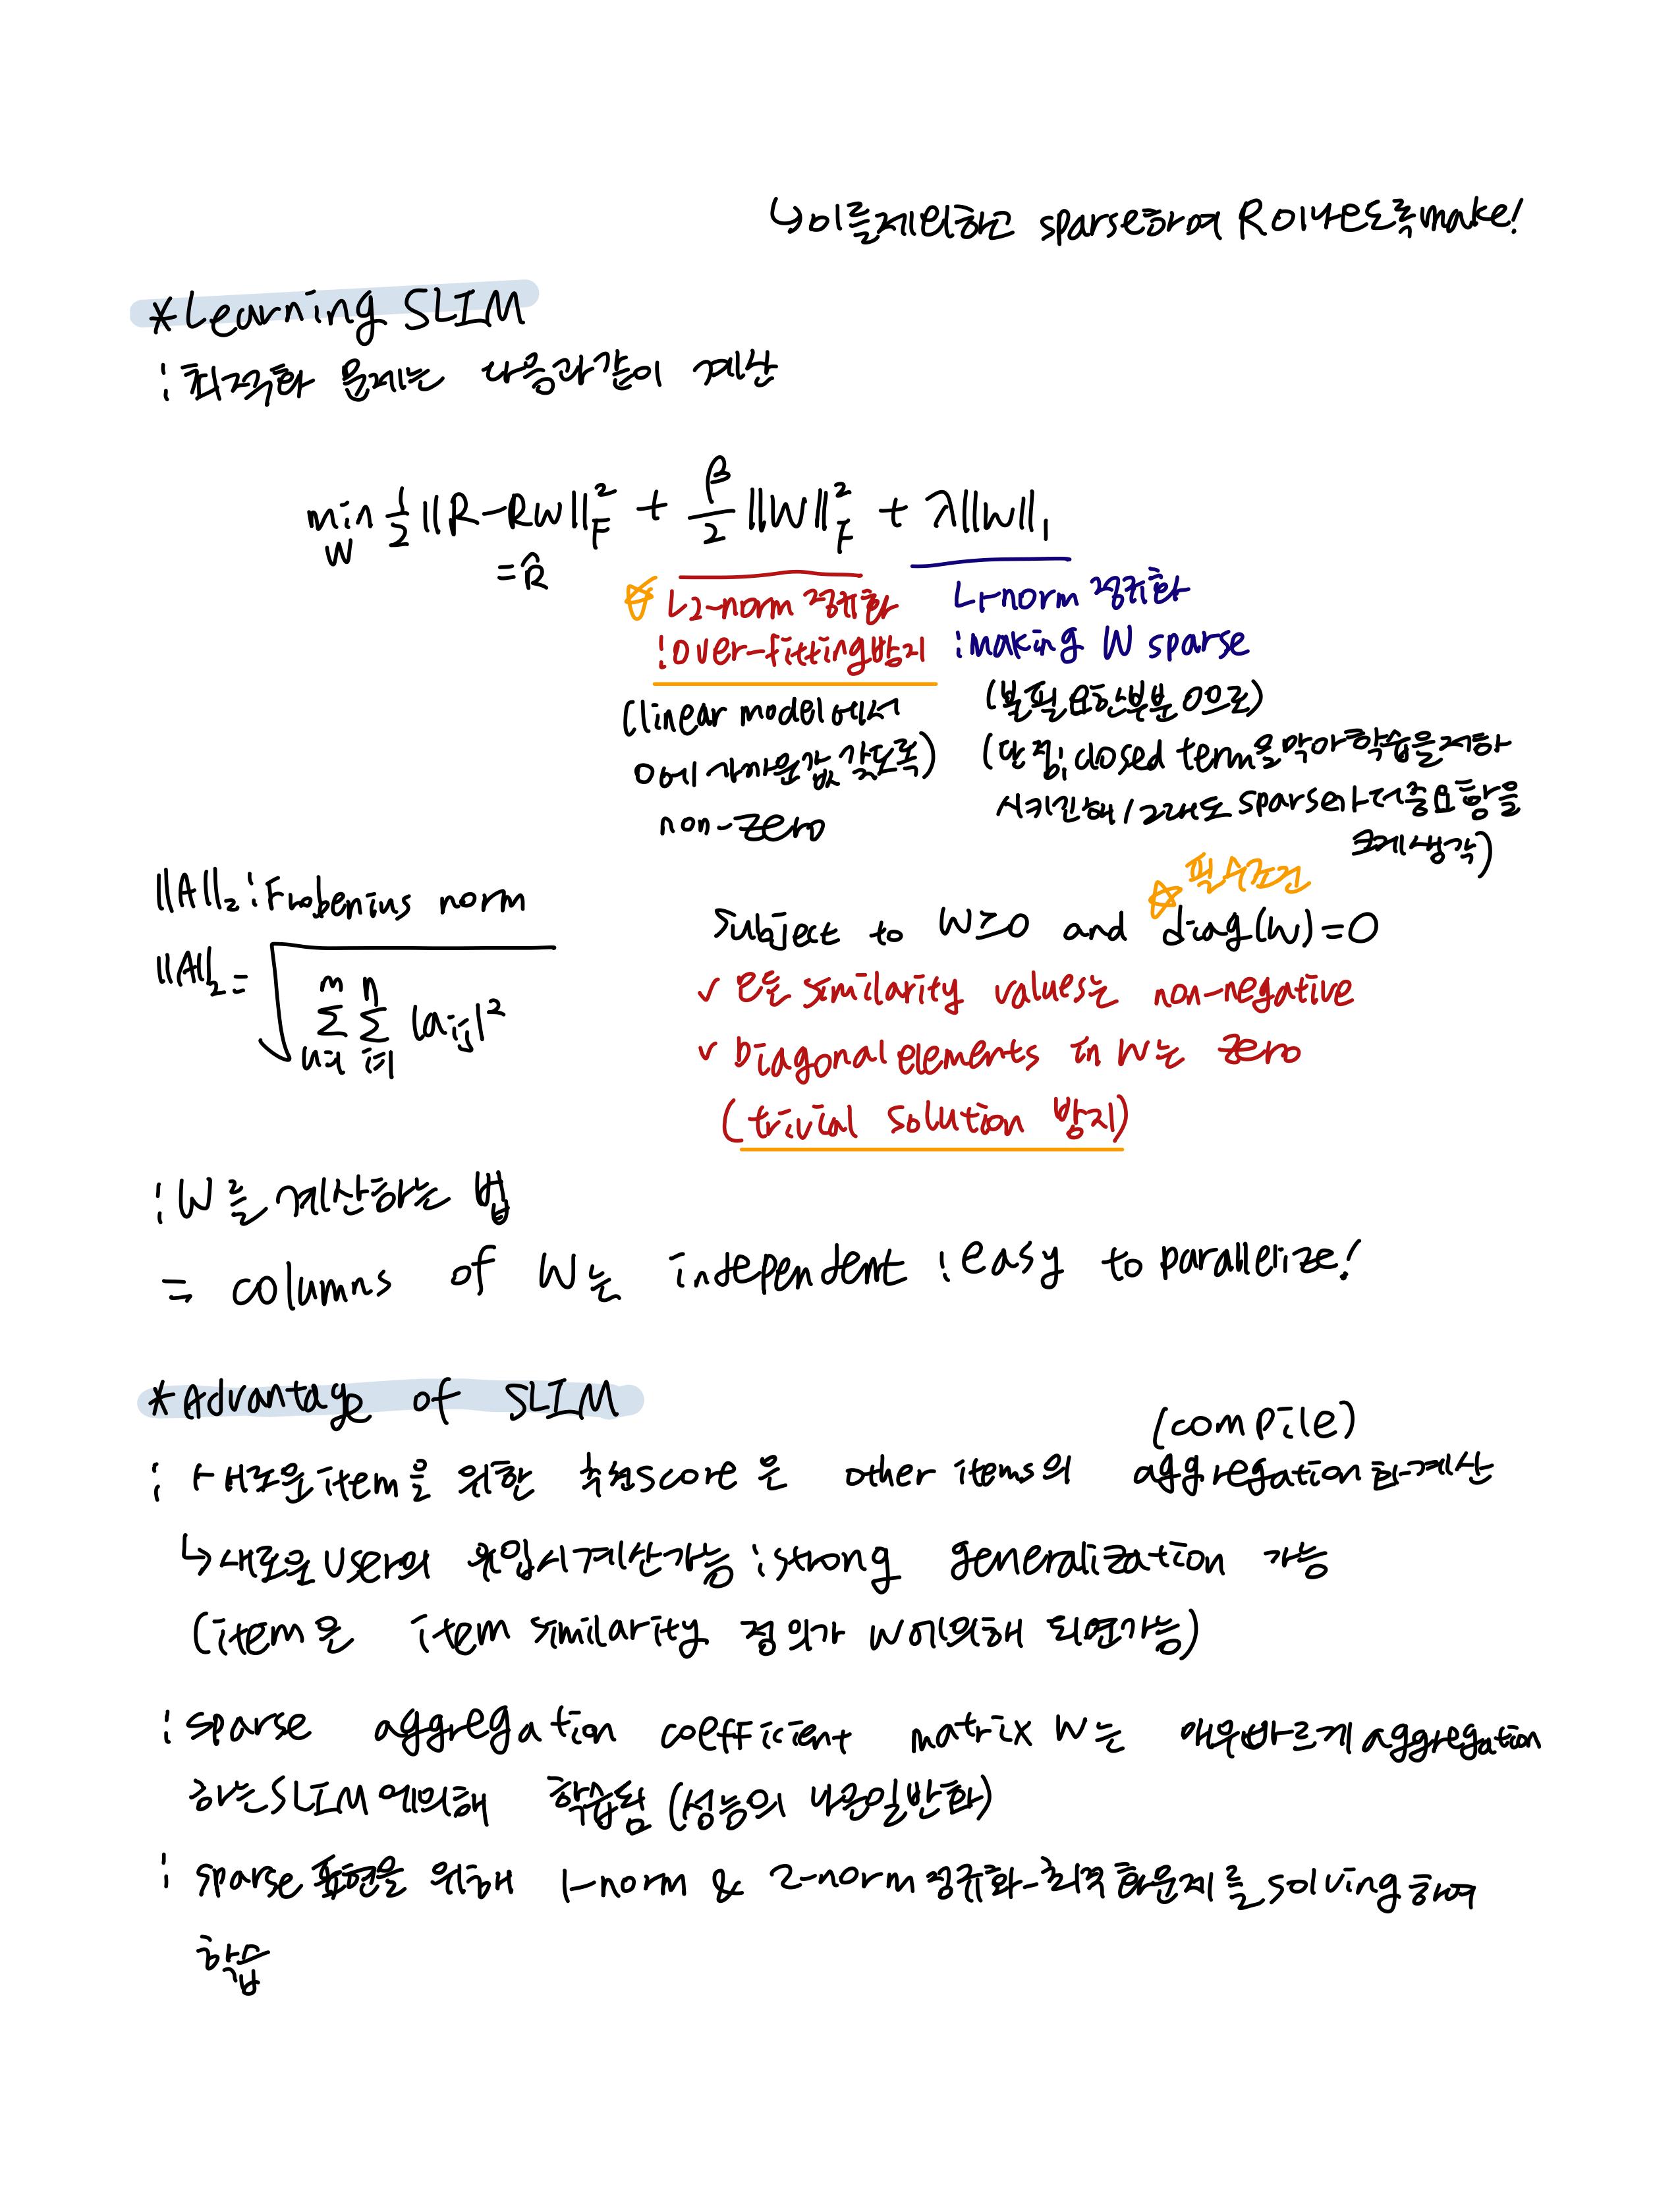 ↳이를제외하고 sparse하여 R이나오도록make!
*Learning SLIM
: 최적화 문제는 다음과같이 계산
min 1/2 ||R-RW||²F + β/2 ||W||²F + λ||W||1
W
=R̂
☆ L2-norm 정규화
: over-fitting방지
(linear model에서
0에 가까운값 갖도록)
non-zero
L1-norm 정규화
: making W sparse
(불필요한부분 0으로)
(단점; closed term을막아학습을저하
시키긴해/그래도 sparse가더중요함을
크게생각)
||A||2 : Frobenius norm
||A||2 = √ m∑ n∑ |aij|²
☆필수조건
Subject to W≥0 and diag(W)=0
✓ 모든 similarity values는 non-negative
✓ Diagonal elements in W는 zero
(trivial solution 방지)
: W를 계산하는 법
= columns of W는 independent : easy to parallelize!
*Advantage of SLIM
(compile)
: 새로운item을 위한 추천score은 other items의 aggregation화-계산
↳새로운user의 유입시계산가능 : strong generalization 가능
(item은 item similarity 정의가 W에의해 되면가능)
: sparse aggregation coefficient matrix W는 매우빠르게aggregation
하는SLIM에의해 학습됨 (성능의 나은일반화)
: sparse 표현을 위해 1-norm & 2-norm정규화-최적화문제를solving하여
학습